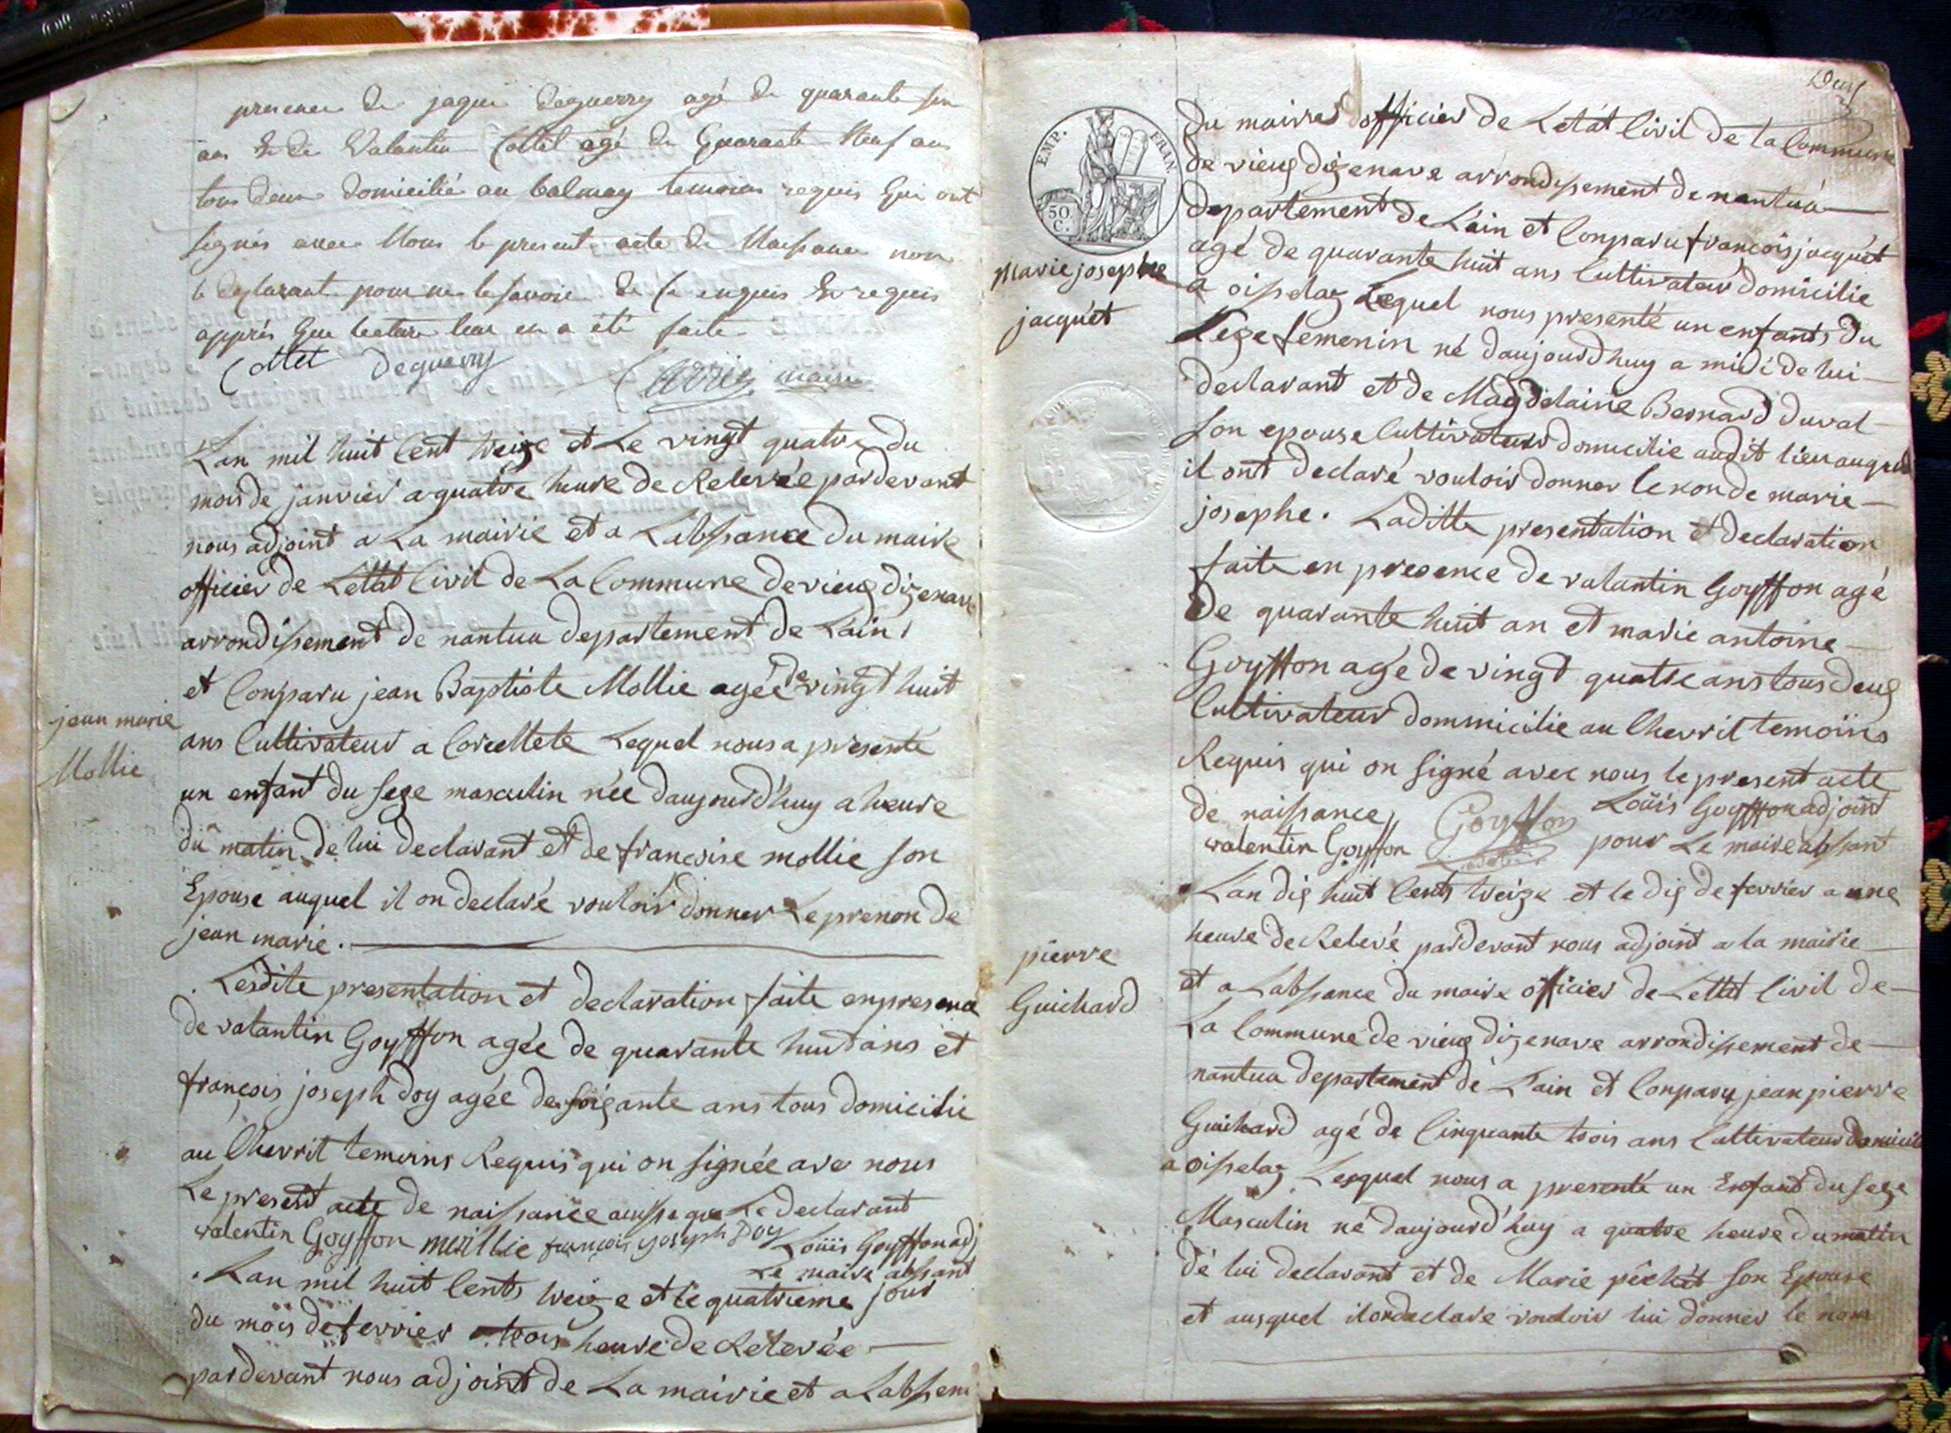 presence de jaque deguerry agé de quarante
ans & de Valantin Cottet agé de Quarante Neuf ans
tous deux domicilié au balmay temoins requis qui ont
signés avec Nous le present acte de Naissance non
le declarant pour ne le savoir de ce enquis & requis
apprés que lecture leur en a été faite
Cottet deguerry maire
L'an mil huit Cent treize et Le vingt quatre du
mois de janvier a quatre heure de Relevée pardevant
nous adjoint a La mairie et a Labssance du maire
officier de Lettat Civil de La Commune de vieux dizenave
arrondissement de nantua departement de Lain
et Conparu jean Baptiste Mollie agée de vingt huit
jean marie
Mollie
ans Cultivateur a Corcellete Lequel nous a presenté
un enfant du sexe masculin née daujourd'huy a heure
du matin de lui declarant et de francoise mollie son
Epouse auquel il on declaré vouloir donner Le prenon de
jean marie.
Lesdite presentation et declaration faite en presence
de valantin Goyffon agée de quarante huit ans et
françois joseph doy agée de soixante ans tous domicilie
au Chevril temoins Requis qui on signée avec nous
Le present acte de naissance ausse que Le declarant
valentin Goyffon mollie françois joseph Doy Loüis Goyffon adj
Le maire absant
. Lan mil huit Cents treize et le quatrieme jour
du mois de fevrier a trois heure de Relevée
pardevant nous adjoint de La mairie et a Labssen
Deux
EMP. FRAN.
50. C.
du maires officier de Letat Civil de la Commune
de vieux dizenave arrondissement de nantua
departement de Lain et Conparu francois jacquet
Marie josephe
jacquet
agé de quarante huit ans Cultivateur domicilie
a oisselaz Lequel nous presenté un enfants du
Sexe femenin né daujourdhuy a midi de lui
declarant et de Magdelaine Bernard duval
son epouse Cultivateurs domicilie audit lieu auquel
il ont declaré vouloir donner le non de marie
josephe. Laditte presentation et declaration
faite en presence de valantin Goyffon agé
de quarante huit an et marie antoine
Goyffon agé de vingt quatre ans tous deux
Cultivateur dommicilie au Chevril temoins
Requis qui on signé avec nous le present acte
de naissance Loüis Goyffon adjoint
valentin Goyffon Goyffon pour Le maire absant
Lan dix huit Cents treize et le dix de fevrier a une
heure de Relevé pardevant nous adjoint a la mairie
pierre
Guichard
et a Labssance du maire officier de Lettat Civil de
La Commune de vieux dizenave arrondissement de
nantua departament de Lain et Conparu jean pierre
Guichard agé de Cinquante trois ans Cultivateur domicilie
a oisselaz Lequel nous a presenté un Enfant du sexe
Masculin né daujourd'huy a quatre heure du matin
de lui declarant et de Marie pêchet son Epouse
et auquel il on declare vouloir lui donner le nom